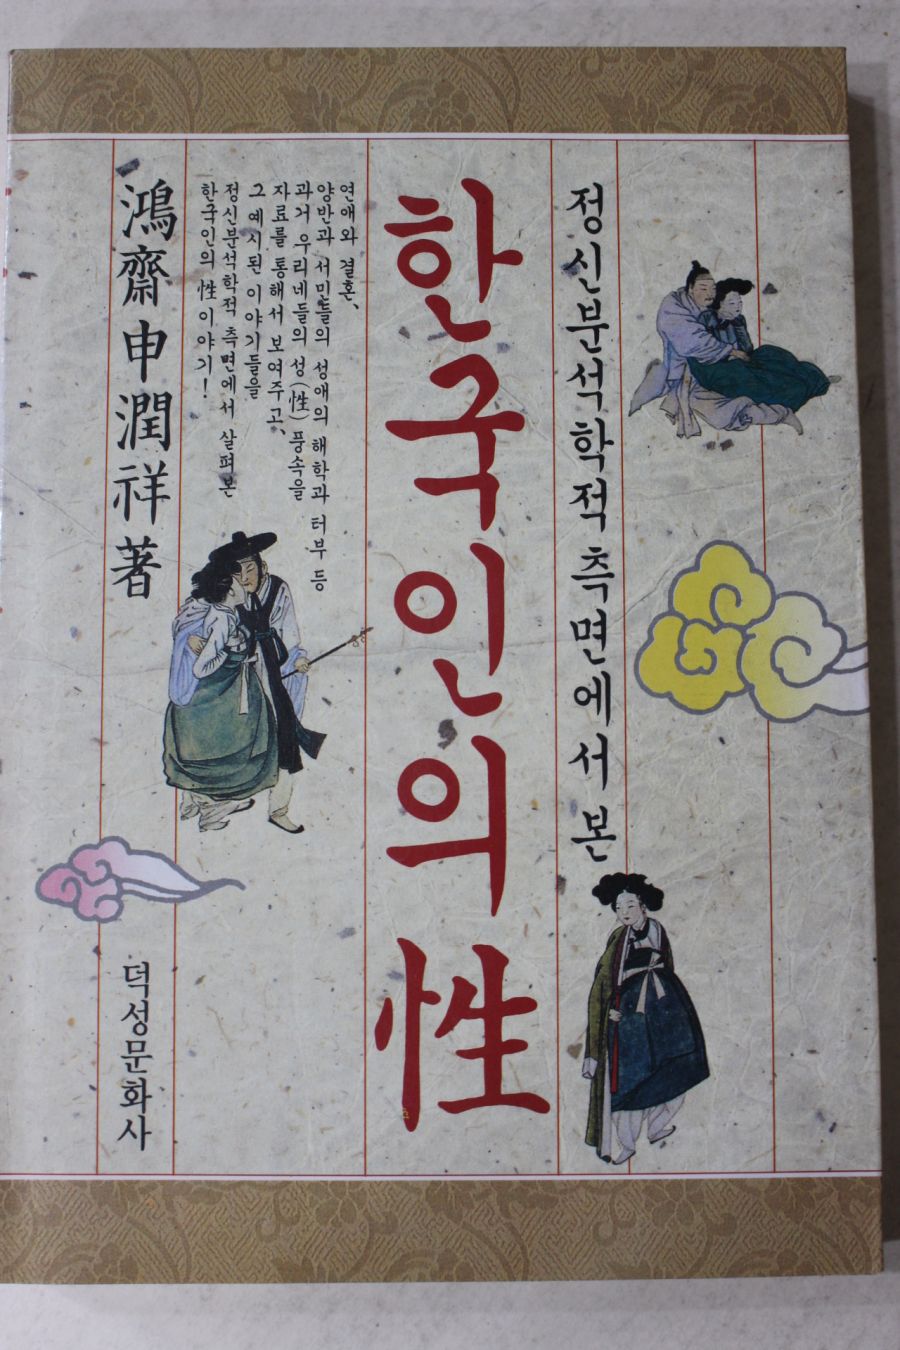 정신분석학적 측면에서 본
한국인의 性
연애와 결혼,
양반과 서민들의 성애의 해학과 터부 등
과거 우리네들의 성(性)풍속을
자료를 통해서 보여주고,
그 예시된 이야기들을
정신분석학적 측면에서 살펴본
한국인의 性이야기!
鴻齋 申潤祥 著
덕성문화사